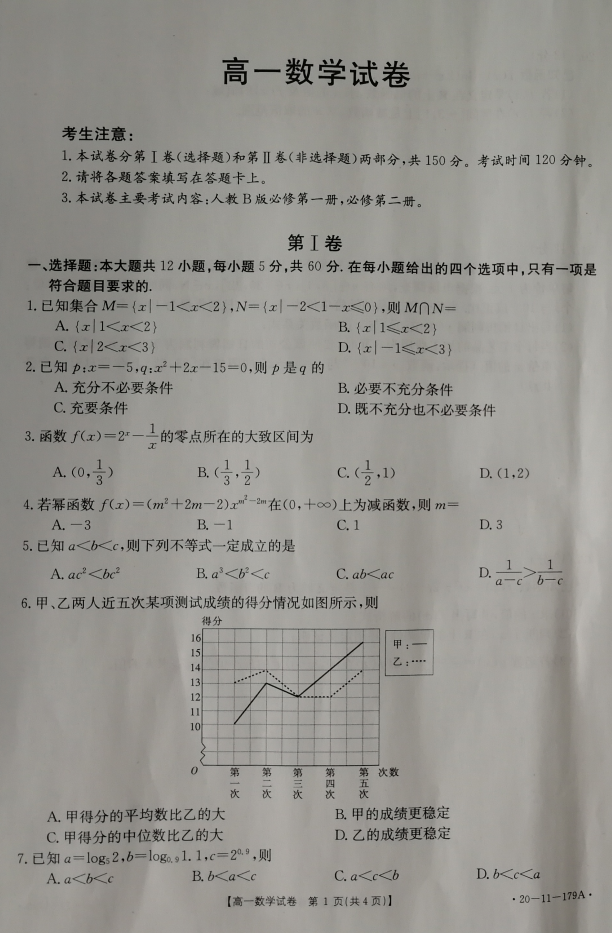 高一数学试卷
考生注意：
1.本试卷分第Ⅰ卷(选择题)和第Ⅱ卷(非选择题)两部分,共150分。考试时间120分钟。
2.请将各题答案填写在答题卡上。
3.本试卷主要考试内容:人教B版必修第一册,必修第二册。
第Ⅰ卷
一、选择题:本大题共12小题,每小题5分,共60分.在每小题给出的四个选项中,只有一项是
符合题目要求的.
1.已知集合M={x|-1<x<2},N={x|-2<1-x≤0},则M∩N=
A.{x|1<x<2} B.{x|1≤x<2}
C.{x|2<x<3} D.{x|-1≤x<3}
2.已知p:x=-5,q:x²+2x-15=0,则p是q的
A.充分不必要条件 B.必要不充分条件
C.充要条件 D.既不充分也不必要条件
3.函数f(x)=2ˣ-1/x的零点所在的大致区间为
A.(0,1/3) B.(1/3,1/2) C.(1/2,1) D.(1,2)
4.若幂函数f(x)=(m²+2m-2)x^(m²-2m)在(0,+∞)上为减函数,则m=
A.-3 B.-1 C.1 D.3
5.已知a<b<c,则下列不等式一定成立的是
A.ac²<bc² B.a³<b²<c C.ab<ac D.1/(a-c)>1/(b-c)
6.甲、乙两人近五次某项测试成绩的得分情况如图所示,则
得分
16
15
14
13
12
11
10
甲:—
乙:····
0 第一次 第二次 第三次 第四次 第五次 次数
A.甲得分的平均数比乙的大 B.甲的成绩更稳定
C.甲得分的中位数比乙的大 D.乙的成绩更稳定
7.已知a=log₅2,b=log₀.₉1.1,c=2^0.9,则
A.a<b<c B.b<a<c C.a<c<b D.b<c<a
【高一数学试卷 第1页(共4页)】
·20-11-179A·